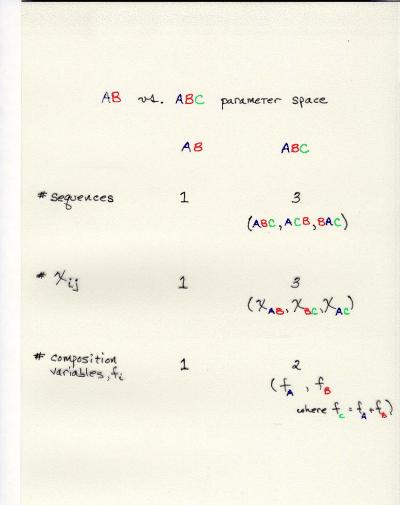 AB vs. ABC parameter space
AB ABC
# sequences 1 3
(ABC, ACB, BAC)
# χij 1 3
(χAB, χBC, χAC)
# composition variables, fi 1 2
(fA, fB
where fC = fA + fB)